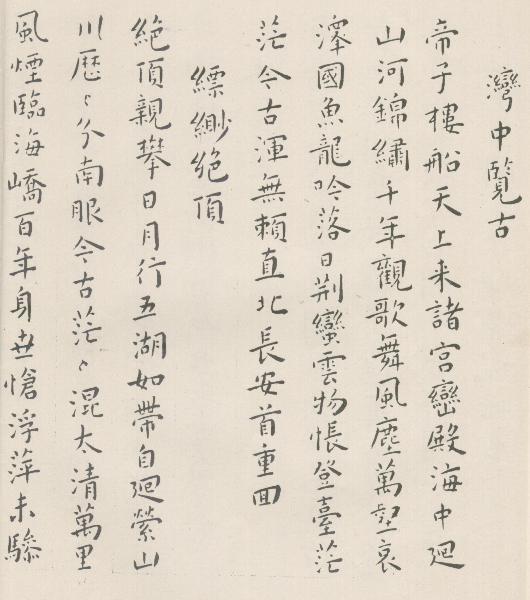 灣中覽古
帝子樓船天上来諸宮巒殿海中廻
山河錦繡千年觀歌舞風塵萬壑哀
澤國魚龍吟落日荆蠻雲物悵登臺茫
茫今古渾無賴直北長安首重回
縹緲絕頂
絕頂親攀日月行五湖如帶自廻縈山
川歴〻分南眼今古茫〻混太清萬里
風煙臨海嶠百年身世愴浮萍未驂